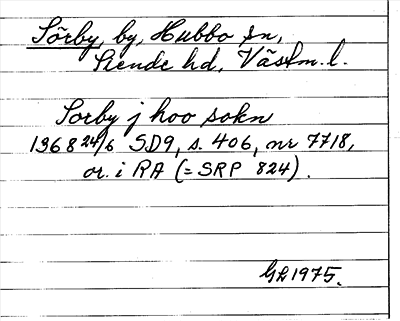 Sörby, by, Hubbo sn,
Siende hd, Västm. l.
Sorby j hoo sokn
1368 24/6 SD9, s. 406, nr 7718,
or. i RA (= SRP 824).
GL 1975.